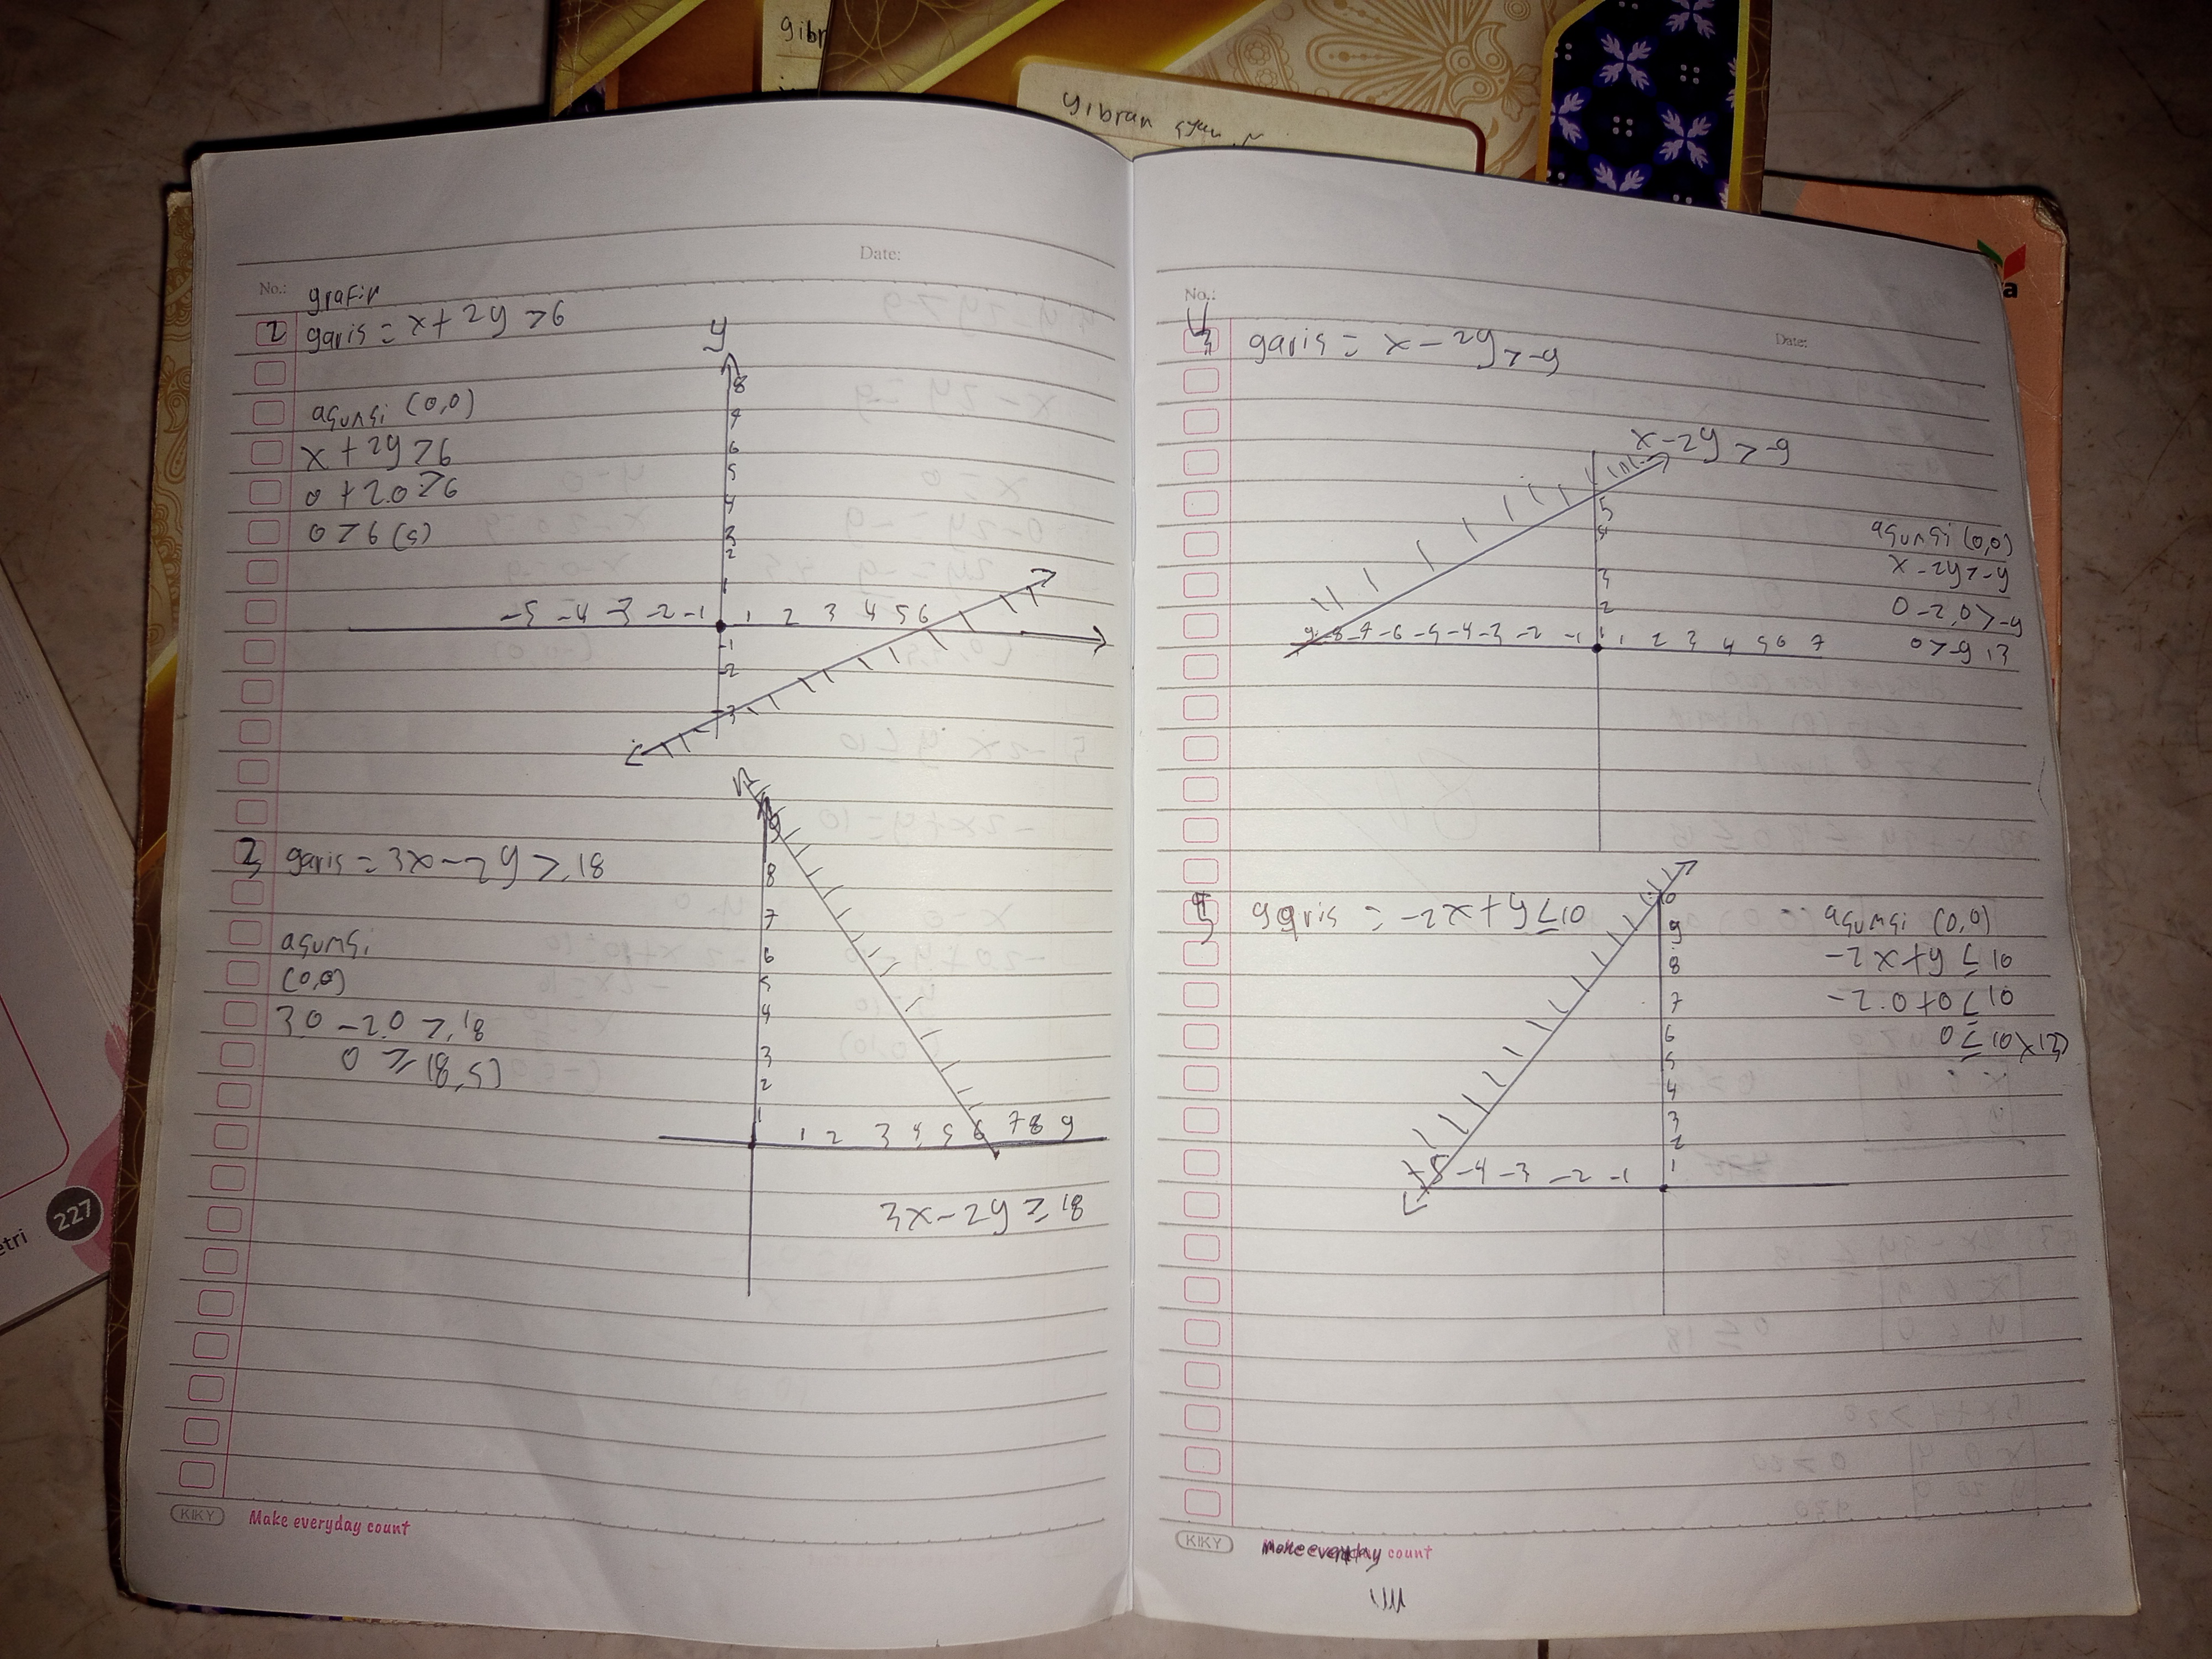 gibr
gibran
a
Date:
No.:
grafik
2 garis = x + 2y ≥ 6
y
8
7
6
5
4
3
2
1
-5 -4 -3 -2 -1 1 2 3 4 5 6
-1
-2
-3
asumsi (0,0)
x + 2y ≥ 6
0 + 2.0 ≥ 6
0 ≥ 6 (s)
3 garis = 3x - 2y ≥ 18
9
8
7
6
5
4
3
2
1
1 2 3 4 5 6 7 8 9
3x - 2y ≥ 18
asumsi
(0,0)
3.0 - 2.0 ≥ 18
0 ≥ 18 (s)
KIKY
Make everyday count
No.:
Date:
4 garis = x - 2y > -9
x - 2y > -9
5
4
3
2
1
9 -8 -7 -6 -5 -4 -3 -2 -1 1 2 3 4 5 6 7
asumsi (0,0)
x - 2y > -9
0 - 2.0 > -9
0 > -9
5 garis = -2x + y ≥ 10
10
9
8
7
6
5
4
3
2
1
-5 -4 -3 -2 -1
asumsi (0,0)
-2x + y ≥ 10
-2.0 + 0 ≥ 10
0 ≥ 10
KIKY
Make everyday count
etri
227